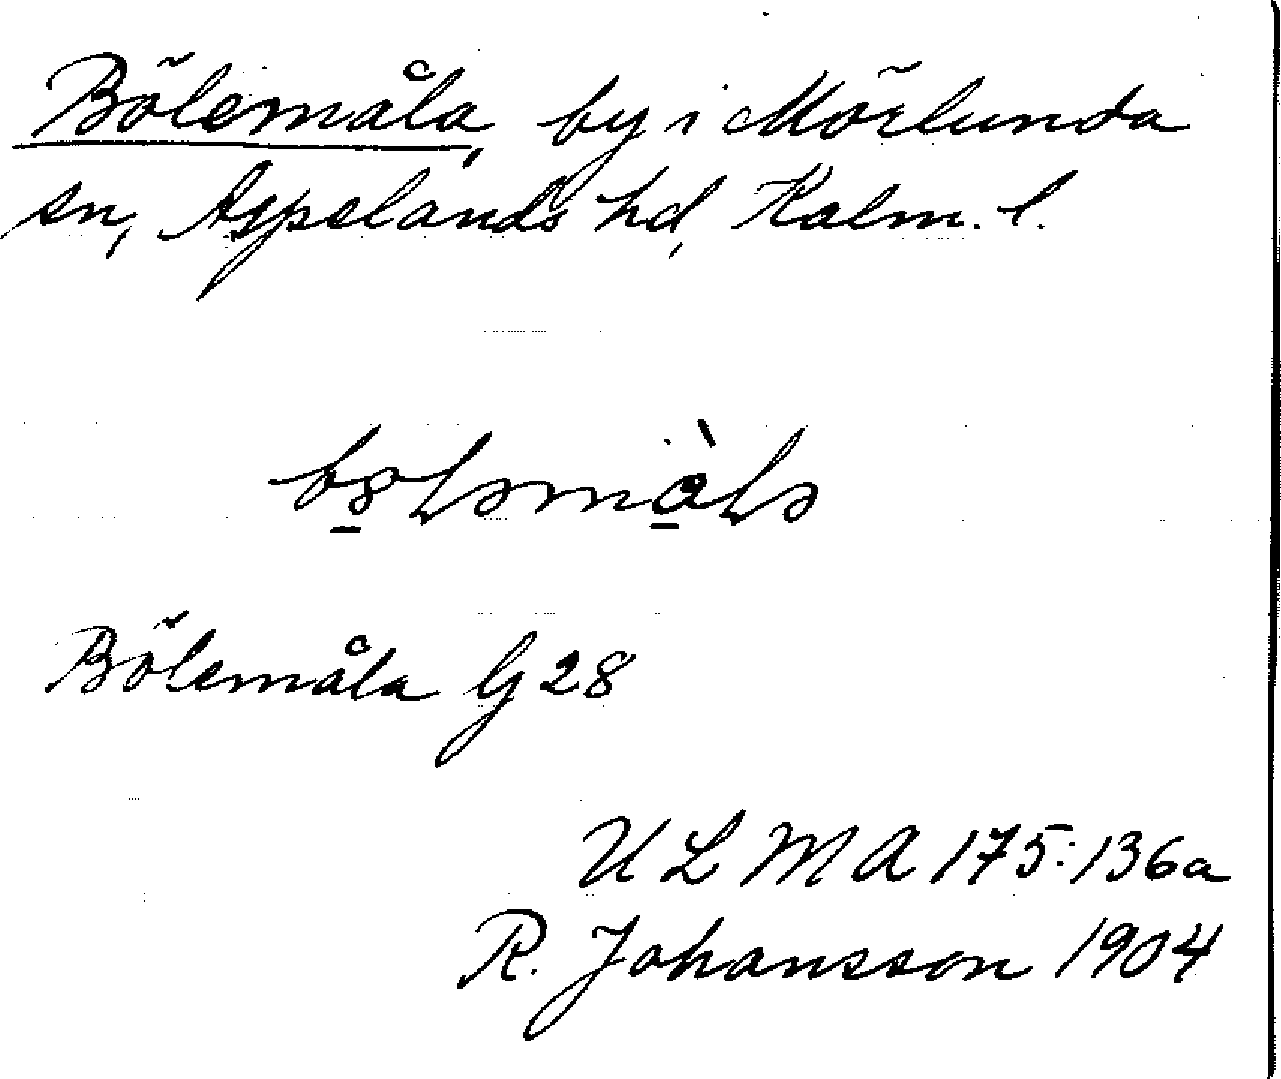 Bölemåla, by i Mörlunda
sn, Aspelands hd, Kalm. l.
Bölemåla G 28
ULMA 175:136a
R. Johansson 1904